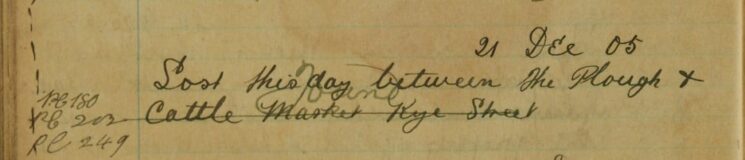 21 Dec 05
Lost this day between the Plough &
Found
Cattle Market Rye Street
PC 180
PC 202
PC 249